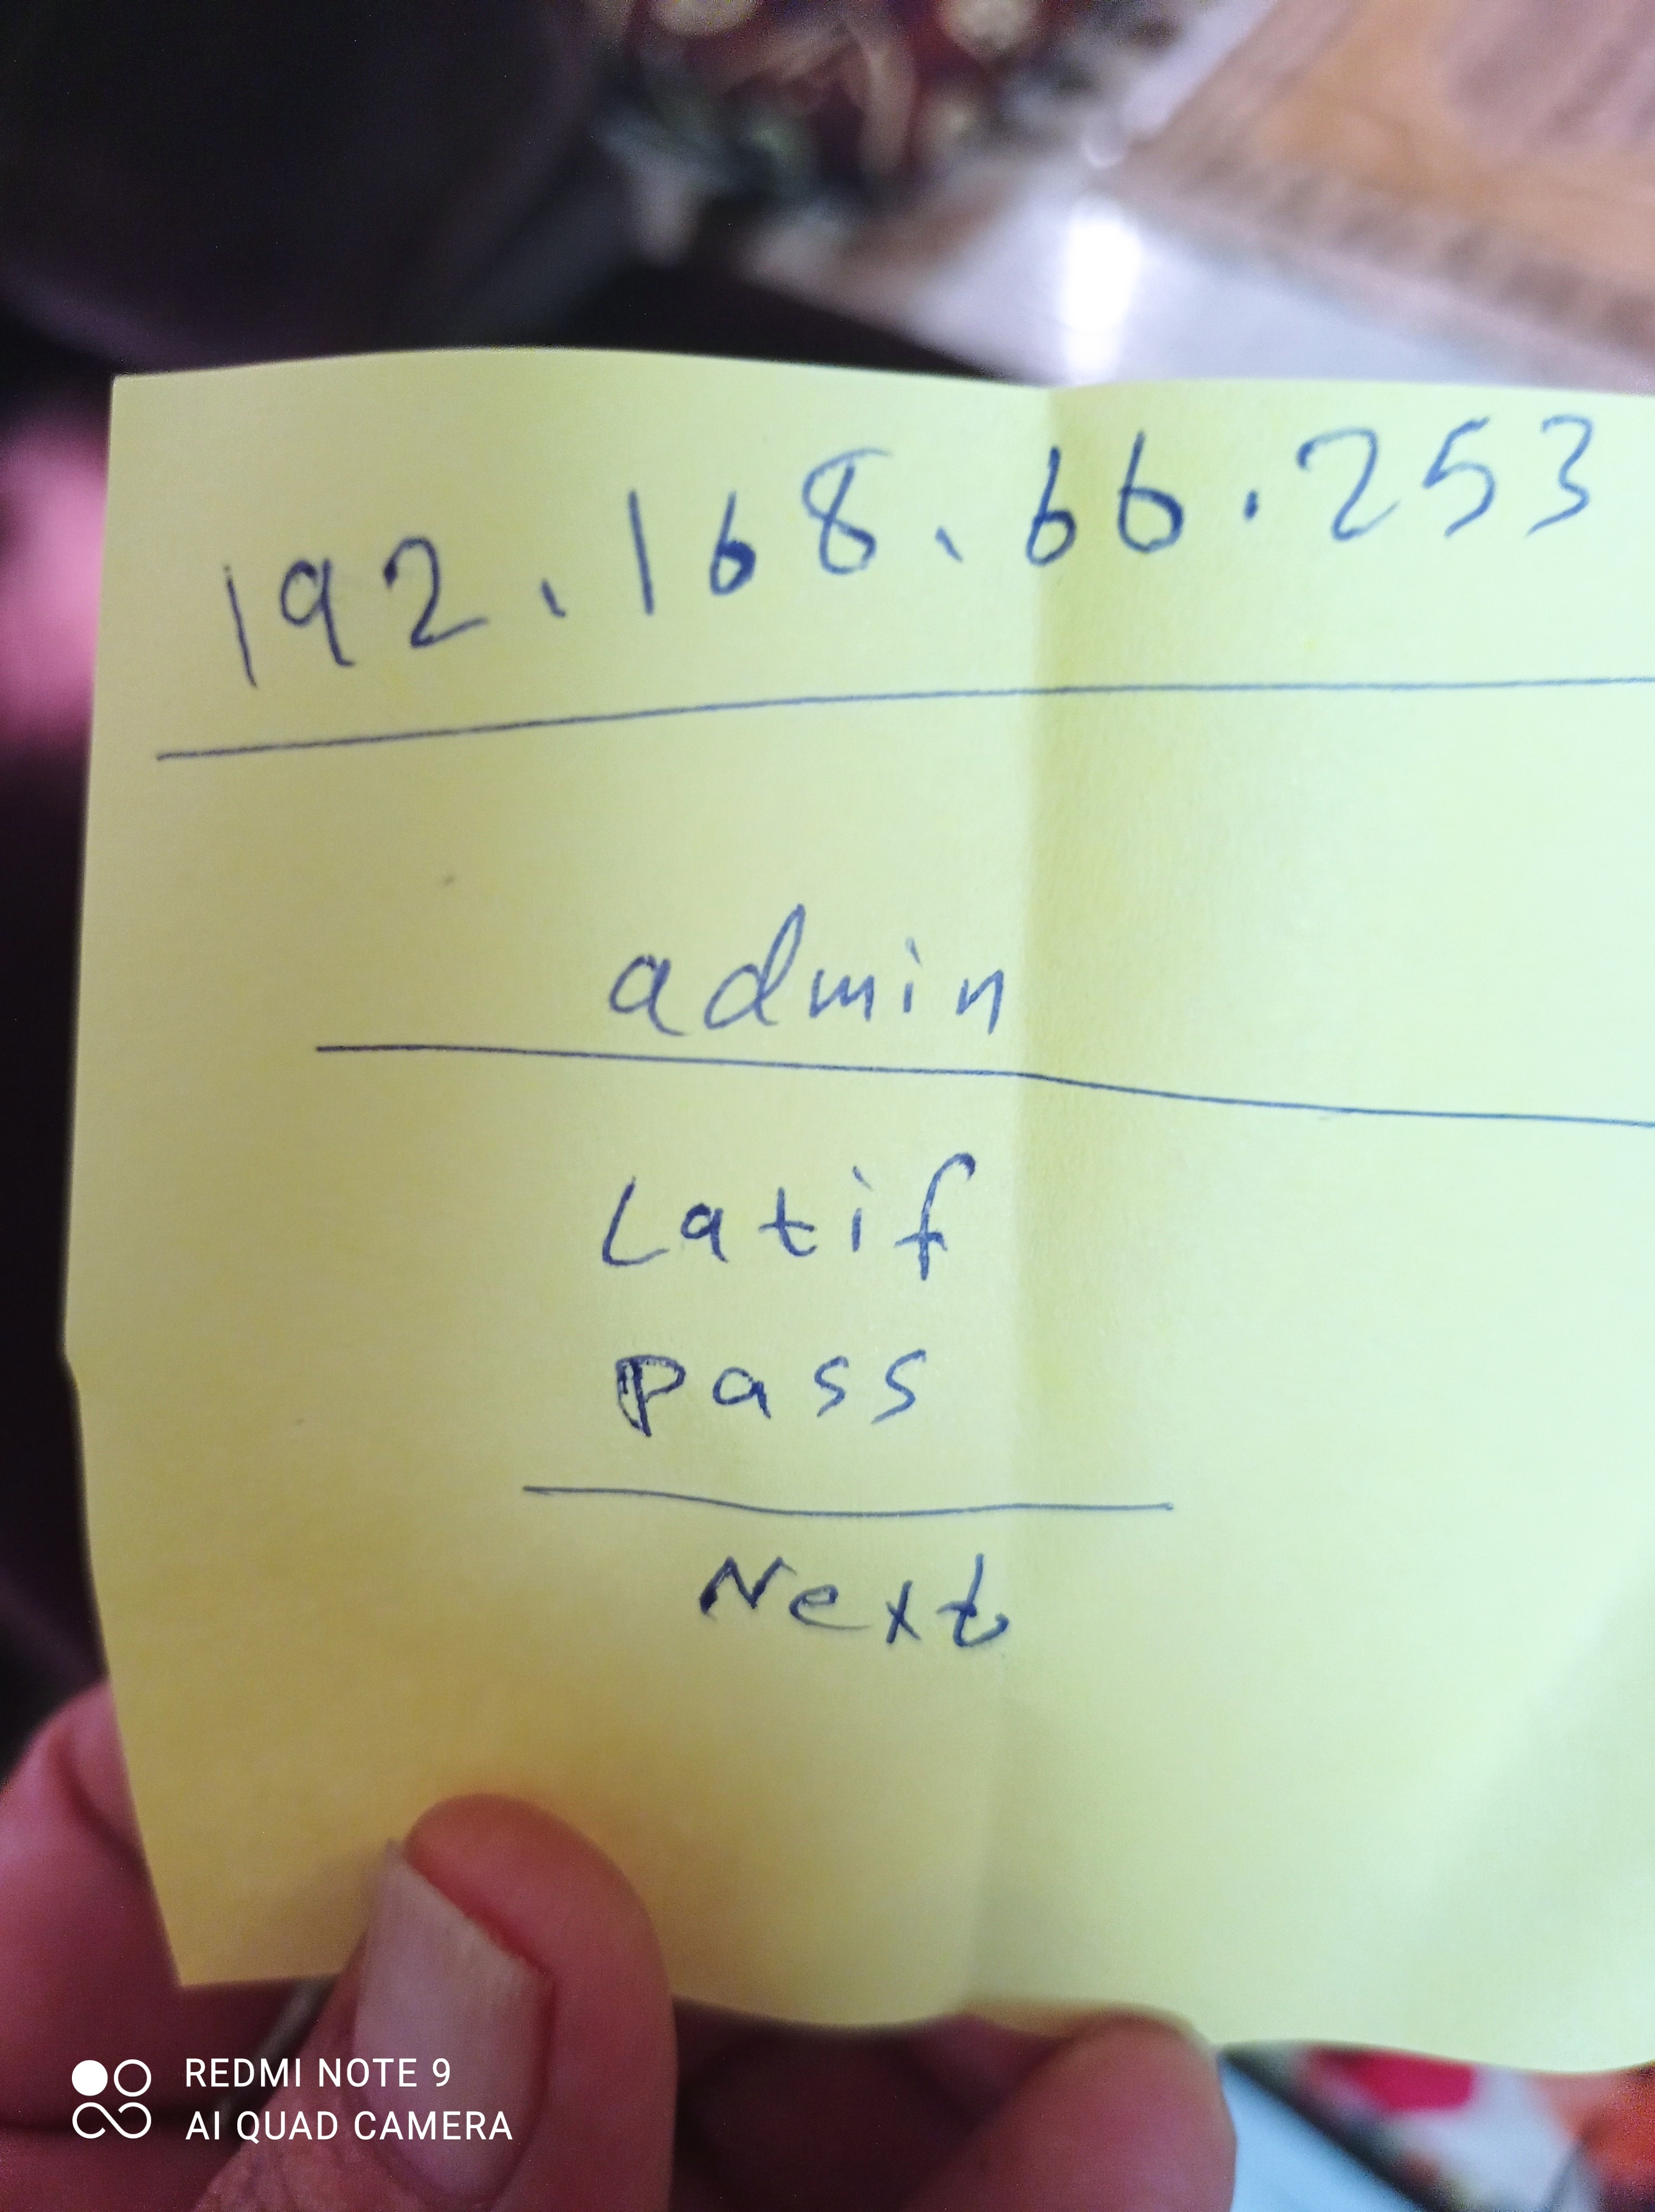 192.168.66.253
admin
Latif
pass
Next
REDMI NOTE 9
AI QUAD CAMERA